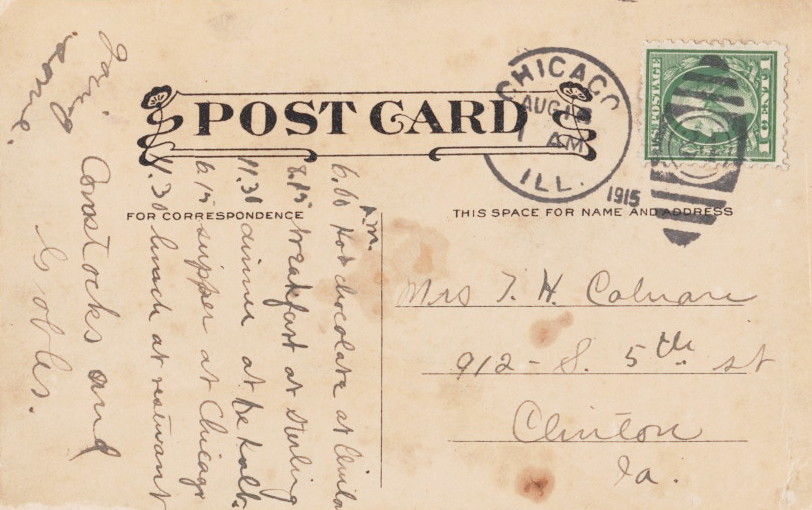 POST CARD
CHICAGO
AUG 1
1 AM
ILL.
1915
U.S. POSTAGE
1 CENT 1
FOR CORRESPONDENCE
THIS SPACE FOR NAME AND ADDRESS
6.00 A.M. Hot chocolate at
8.15 breakfast at Sterling
11.30 dinner at De Kalb
6.15 supper at Chicago
11.30 lunch at restaurant
Comstocks and
Gobles.
Mrs T. H.
912 - S. 5th st
Clinton
Ia.